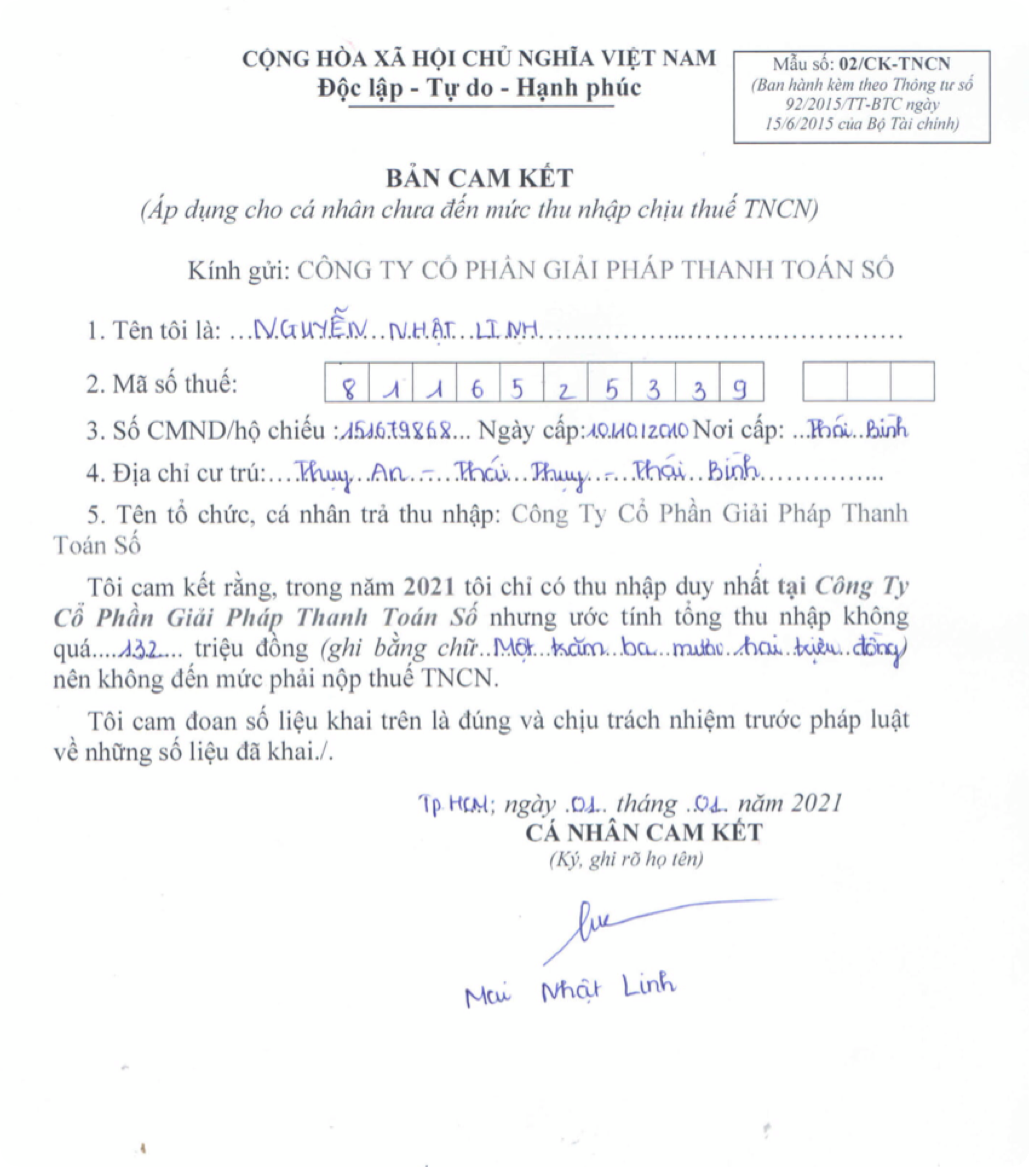 CỘNG HÒA XÃ HỘI CHỦ NGHĨA VIỆT NAM
Độc lập - Tự do - Hạnh phúc
Mẫu số: 02/CK-TNCN
(Ban hành kèm theo Thông tư số
92/2015/TT-BTC ngày
15/6/2015 của Bộ Tài chính)
BẢN CAM KẾT
(Áp dụng cho cá nhân chưa đến mức thu nhập chịu thuế TNCN)
Kính gửi: CÔNG TY CỔ PHẦN GIẢI PHÁP THANH TOÁN SỐ
1. Tên tôi là: ...NGUYỄN NHẬT LINH...
2. Mã số thuế: 8 1 1 6 5 2 5 3 3 9
3. Số CMND/hộ chiếu :151679868... Ngày cấp:10/10/2010 Nơi cấp: ...Thái Bình
4. Địa chỉ cư trú:....Thuỵ An - Thái Thuỵ - Thái Bình...
5. Tên tổ chức, cá nhân trả thu nhập: Công Ty Cổ Phần Giải Pháp Thanh
Toán Số
Tôi cam kết rằng, trong năm 2021 tôi chỉ có thu nhập duy nhất tại Công Ty
Cổ Phần Giải Pháp Thanh Toán Số nhưng ước tính tổng thu nhập không
quá.....132.... triệu đồng (ghi bằng chữ..Một trăm ba mươi hai triệu đồng)
nên không đến mức phải nộp thuế TNCN.
Tôi cam đoan số liệu khai trên là đúng và chịu trách nhiệm trước pháp luật
về những số liệu đã khai./.
Tp HCM; ngày .01.. tháng .01. năm 2021
CÁ NHÂN CAM KẾT
(Ký, ghi rõ họ tên)
Mai Nhật Linh